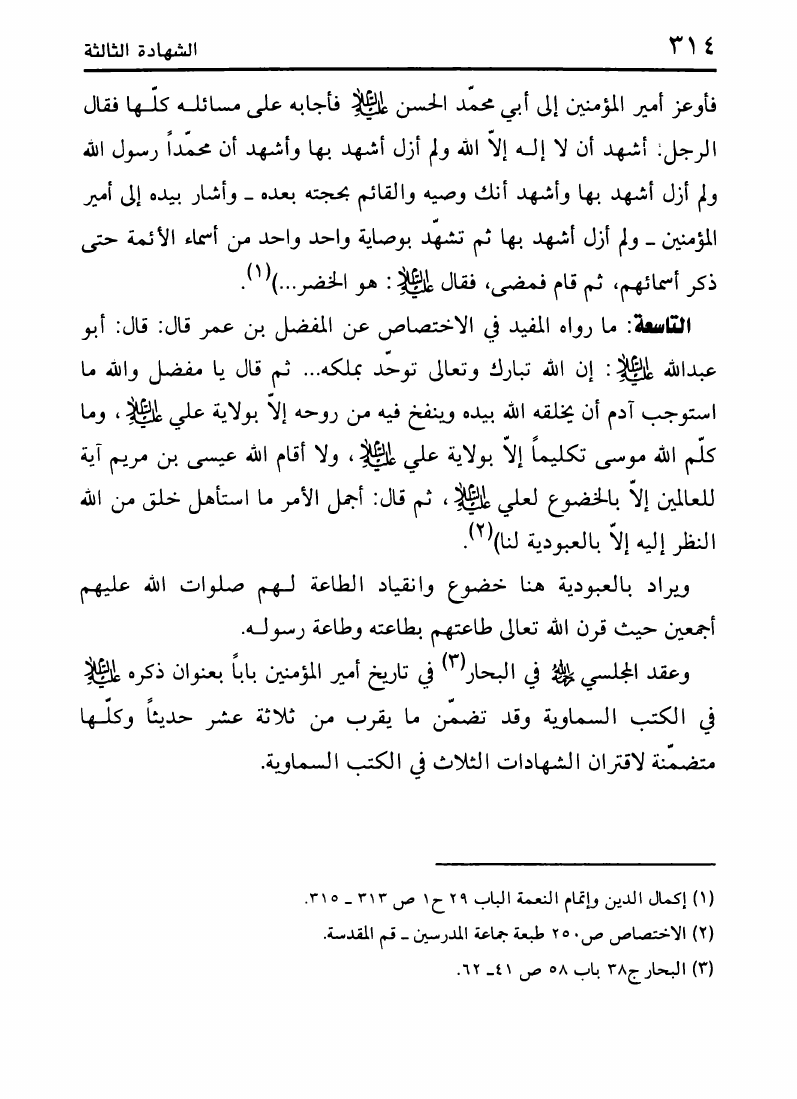 ٣١٤
الشهادة الثالثة
فأوعز أمير المؤمنين إلى أبي محمّد الحسن عليه السلام فأجابه على مسائله كلّها فقال
الرجل: أشهد أن لا إله إلاّ الله ولم أزل أشهد بها وأشهد أن محمّداً رسول الله
ولم أزل أشهد بها وأشهد أنك وصيه والقائم بحجته بعده ـ وأشار بيده إلى أمير
المؤمنين ـ ولم أزل أشهد بها ثم تشهّد بوصاية واحد واحد من أسماء الأئمة حتى
ذكر أسمائهم، ثم قام فمضى، فقال عليه السلام : هو الخضر...)(١).
التاسعة: ما رواه المفيد في الاختصاص عن المفضل بن عمر قال: قال: أبو
عبدالله عليه السلام : إن الله تبارك وتعالى توحّد بملكه... ثم قال يا مفضل والله ما
استوجب آدم أن يخلقه الله بيده وينفخ فيه من روحه إلاّ بولاية علي عليه السلام ، وما
كلّم الله موسى تكليماً إلاّ بولاية علي عليه السلام ، ولا أقام الله عيسى بن مريم آية
للعالمين إلاّ بالخضوع لعلي عليه السلام ، ثم قال: أجمل الأمر ما استأهل خلق من الله
النظر إليه إلاّ بالعبودية لنا)(٢).
ويراد بالعبودية هنا خضوع وانقياد الطاعة لهم صلوات الله عليهم
أجمعين حيث قرن الله تعالى طاعتهم بطاعته وطاعة رسوله.
وعقد المجلسي رحمه الله في البحار(٣) في تاريخ أمير المؤمنين باباً بعنوان ذكره عليه السلام
في الكتب السماوية وقد تضمّن ما يقرب من ثلاثة عشر حديثاً وكلّها
متضمّنة لاقتران الشهادات الثلاث في الكتب السماوية.
(١) إكمال الدين وإتمام النعمة الباب ٢٩ ح١ ص ٣١٣ ـ ٣١٥.
(٢) الاختصاص ص٢٥٠ طبعة جماعة المدرسين ـ قم المقدسة.
(٣) البحار ج٣٨ باب ٥٨ ص ٤١ـ ٦٢.